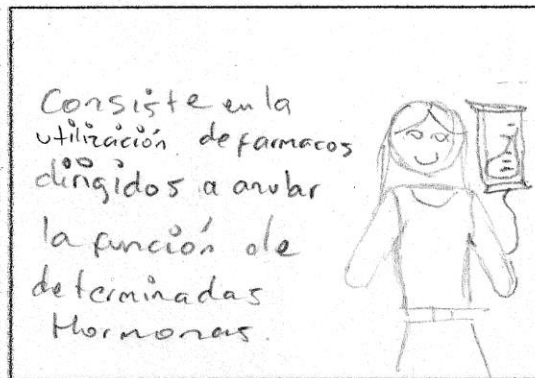 Consiste en la
utilización de farmacos
dirigidos a anular
la función de
determinadas
Hormonas.